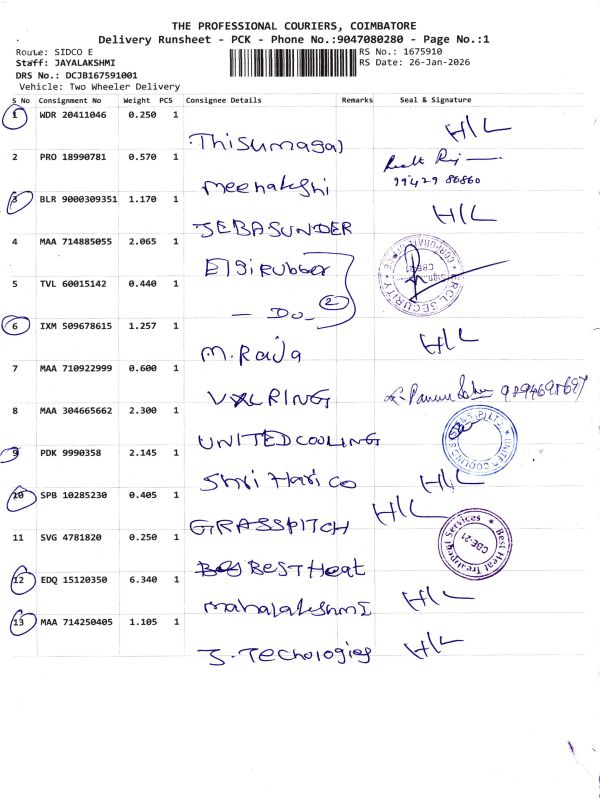 THE PROFESSIONAL COURIERS, COIMBATORE
Delivery Runsheet - PCK - Phone No.:9047080280 - Page No.:1
Route: SIDCO E
RS No.: 1675910
Staff: JAYALAKSHMI
RS Date: 26-Jan-2026
DRS No.: DCJB167591001
Vehicle: Two Wheeler Delivery
S No Consignment No Weight PCS Consignee Details Remarks Seal & Signature
1 WDR 20411046 0.250 1 Thisumagal H/L
2 PRO 18990781 0.570 1 meenakshi
99429 86860
3 BLR 9000309351 1.170 1 JEBASUNDER H/L
4 MAA 714885055 2.065 1 Elgirubber
RCL SECURITY CORPORATE OFFICE CBE-21
5 TVL 60015142 0.440 1 — Do — 2
6 IXM 509678615 1.257 1 M. Raja H/L
7 MAA 710922999 0.600 1 VXL RING 9894698697
8 MAA 304665662 2.300 1 UNITED COOLING
9 PDK 9990358 2.145 1 Shri Hari co H/L
10 SPB 10285230 0.405 1 GRASSPITCH H/L
11 SVG 4781820 0.250 1 BEST Heat
Best Heat Treatmental Services CBE-21
12 EDQ 15120350 6.340 1 mahalakshmi H/L
13 MAA 714250405 1.105 1 J. Technologies H/L